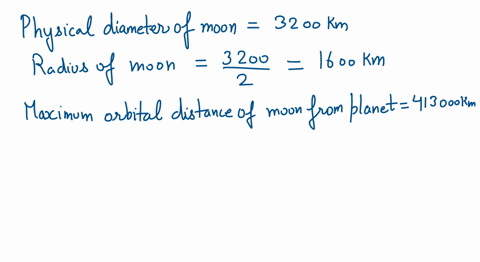 Physical diameter of moon = 3200 Km
Radius of moon = 3200/2 = 1600 Km
Maximum orbital distance of moon from planet = 413000Km